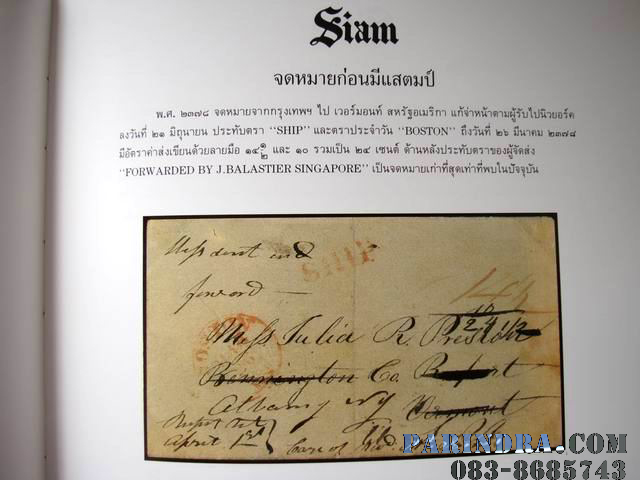 Siam
จดหมายก่อนมีแสตมป์
พ.ศ. ๒๓๗๘ จดหมายจากกรุงเทพฯ ไป เวอร์มอนท์ สหรัฐอเมริกา แก้จ่าหน้าตามผู้รับไปนิวยอร์ค
ลงวันที่ ๒๑ มิถุนายน ประทับตรา "SHIP" และตราประจำวัน "BOSTON" ถึงวันที่ ๒๖ มีนาคม ๒๓๗๘
มีอัตราค่าส่งเขียนด้วยลายมือ ๑๔ ๑/๒ และ ๑๐ รวมเป็น ๒๔ เซนต์ ด้านหลังประทับตราของผู้จัดส่ง
"FORWARDED BY J.BALASTIER SINGAPORE" เป็นจดหมายเก่าที่สุดเท่าที่พบในปัจจุบัน
SHIP
forward
10
24 1/2
Miss Julia R. Preston
Bennington Co.
Albany NY Vermont
April 1st
Care of
PARINDRA.COM
083-8685743